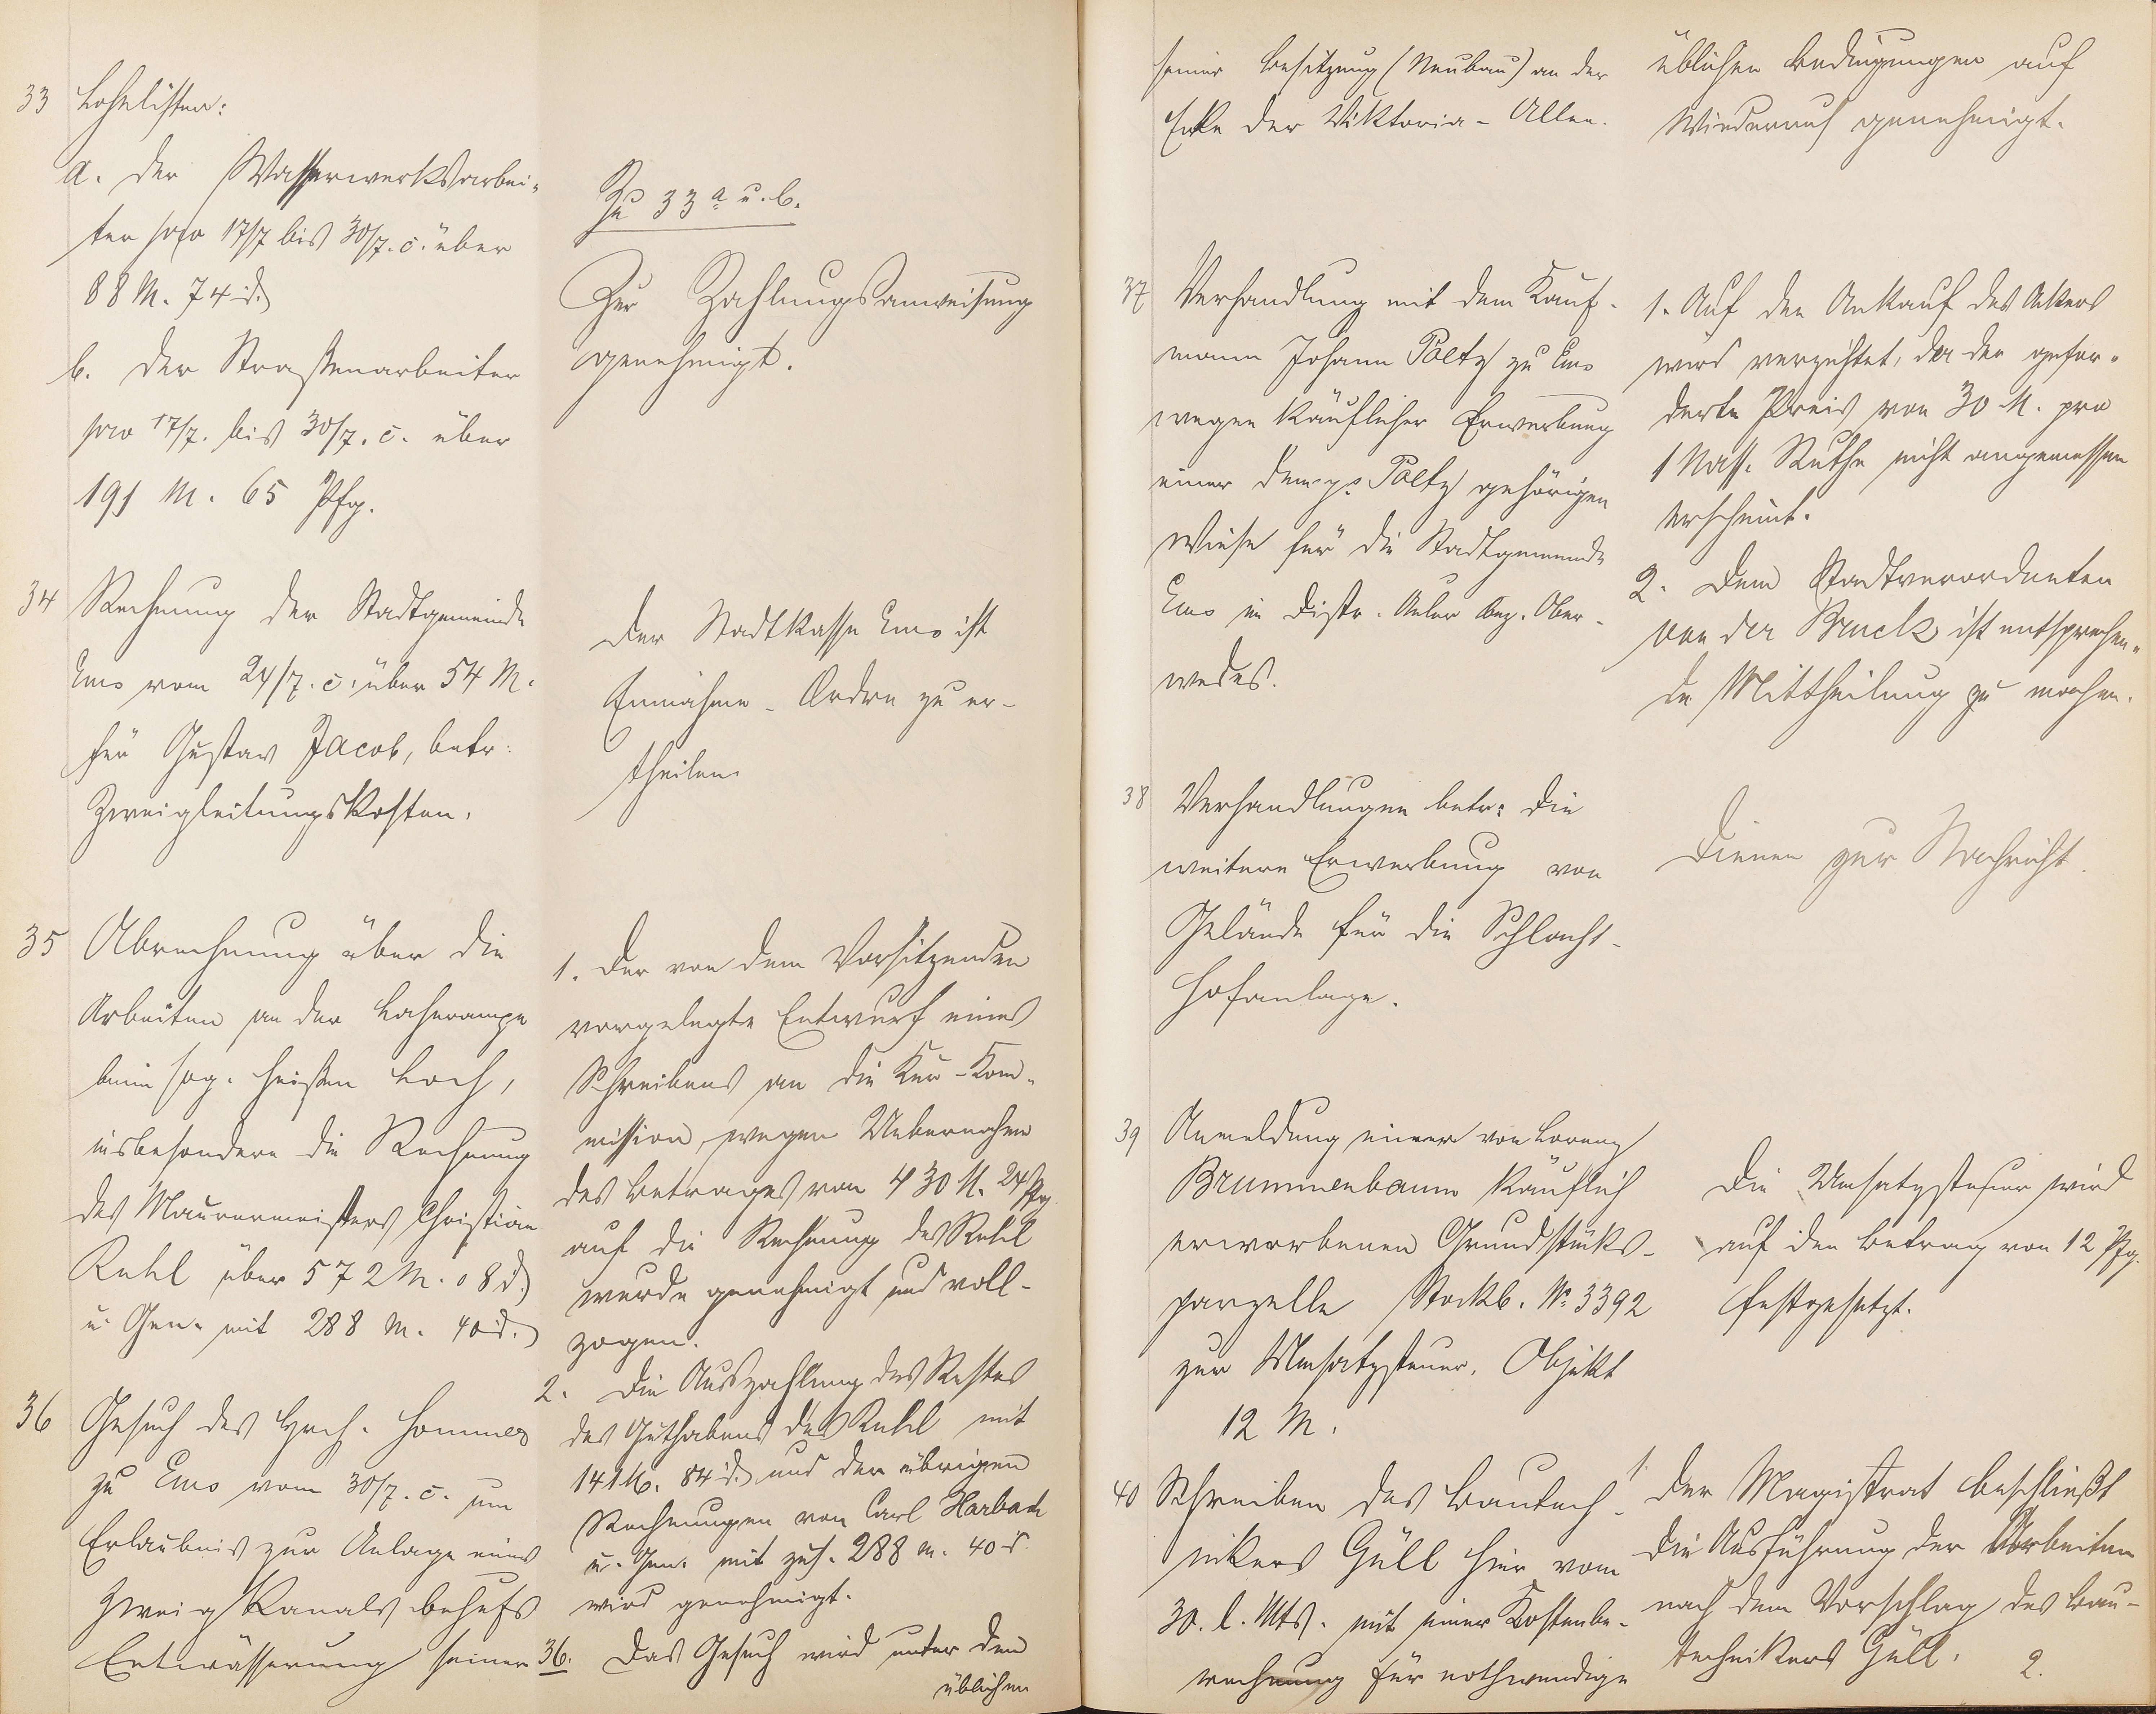 33 Lohnlisten:
a. der Wasserwerksarbei-
ter pro 17/7 bis 30/7. c. über
88 M. 74 d.
b. der Straßenarbeiter
pro 17/7. bis 30/7. c. über
191 M. 65 Pfg.
Zu 33 a u. b.
Zur Zahlungsanweisung
genehmigt.
34 Rechnung der Stadtgemeinde
Ems vom 24/7. c. über 54 M.
für Gustav Jacob, betr.
Zweigleitungskosten.
Der Stadtkasse Ems ist
Einnahme-Ordre zu er-
theilen.
35 Abrechnung über die
Arbeiten an der Lahnrampe
beim sog. heißen Loch,
insbesondere die Rechnung
des Maurermeisters Christian
Kuhl über 572 M. 08 d.
u. Gen. mit 288 M. 40 d.
1. Der von dem Vorsitzenden
vorgelegte Entwurf eines
Schreibens an die Kur-Kom-
mission, wegen Uebernahme
des Betrages von 430 M. 24 Pfg.
auf die Rechnung des Kuhl
wurde genehmigt und voll-
zogen.
2. Die Auszahlung des Restes
des Guthabens des Kuhl mit
141 M. 84 d. und der übrigen
Rechnungen von Carl Harbach
u. Gen. mit zus. 288 M. 40 d.
wird genehmigt.
36 Gesuch des Hrch. Hommer
zu Ems vom 30/7. c. um
Erlaubnis zur Anlage eines
Zweigkanals behufs
Entwässerung seiner
36. Das Gesuch wird unter den
üblichen
seiner Besitzung (Neubau) an der
Ecke der Viktoria-Allee.
üblichen Bedingungen auf
Wiederruf genehmigt.
37 Verhandlung mit dem Kauf-
mann Johann Poltz zu Ems
wegen käuflicher Erwerbung
einer dem p. Poltz gehörigen
Wiese für die Stadtgemeinde
Ems im Distr. Auler Bez. Ober-
wedes.
1. Auf den Ankauf des Ackers
wird verzichtet, da der gefor-
derte Preis von 30 M. pro
1 Nass. Ruthe nicht angemessen
erscheint.
2. Dem Stadtverordneten
von der Bruck ist entsprechen-
de Mittheilung zu machen.
38 Verhandlungen betr: die
weitere Erwerbung von
Gelände für die Schlacht-
hofanlage.
Dienen zur Nachricht.
39 Anmeldung einer von Lorenz
Brummenbaum käuflich
erworbenen Grundstücks-
parzelle Stockb. No. 3392
zur Umsatzsteuer. Objekt
12 M.
Die Umsatzsteuer wird
auf den Betrag von 12 Pfg.
festgesetzt.
40 Schreiben des Bautech-
nikers Güll hier vom
30. l. Mts. mit einer Kostenbe-
rechnung für nothwendige
1. Der Magistrat beschließt
die Ausführung der Arbeiten
nach dem Vorschlag des Bau-
technikers Güll.
2.